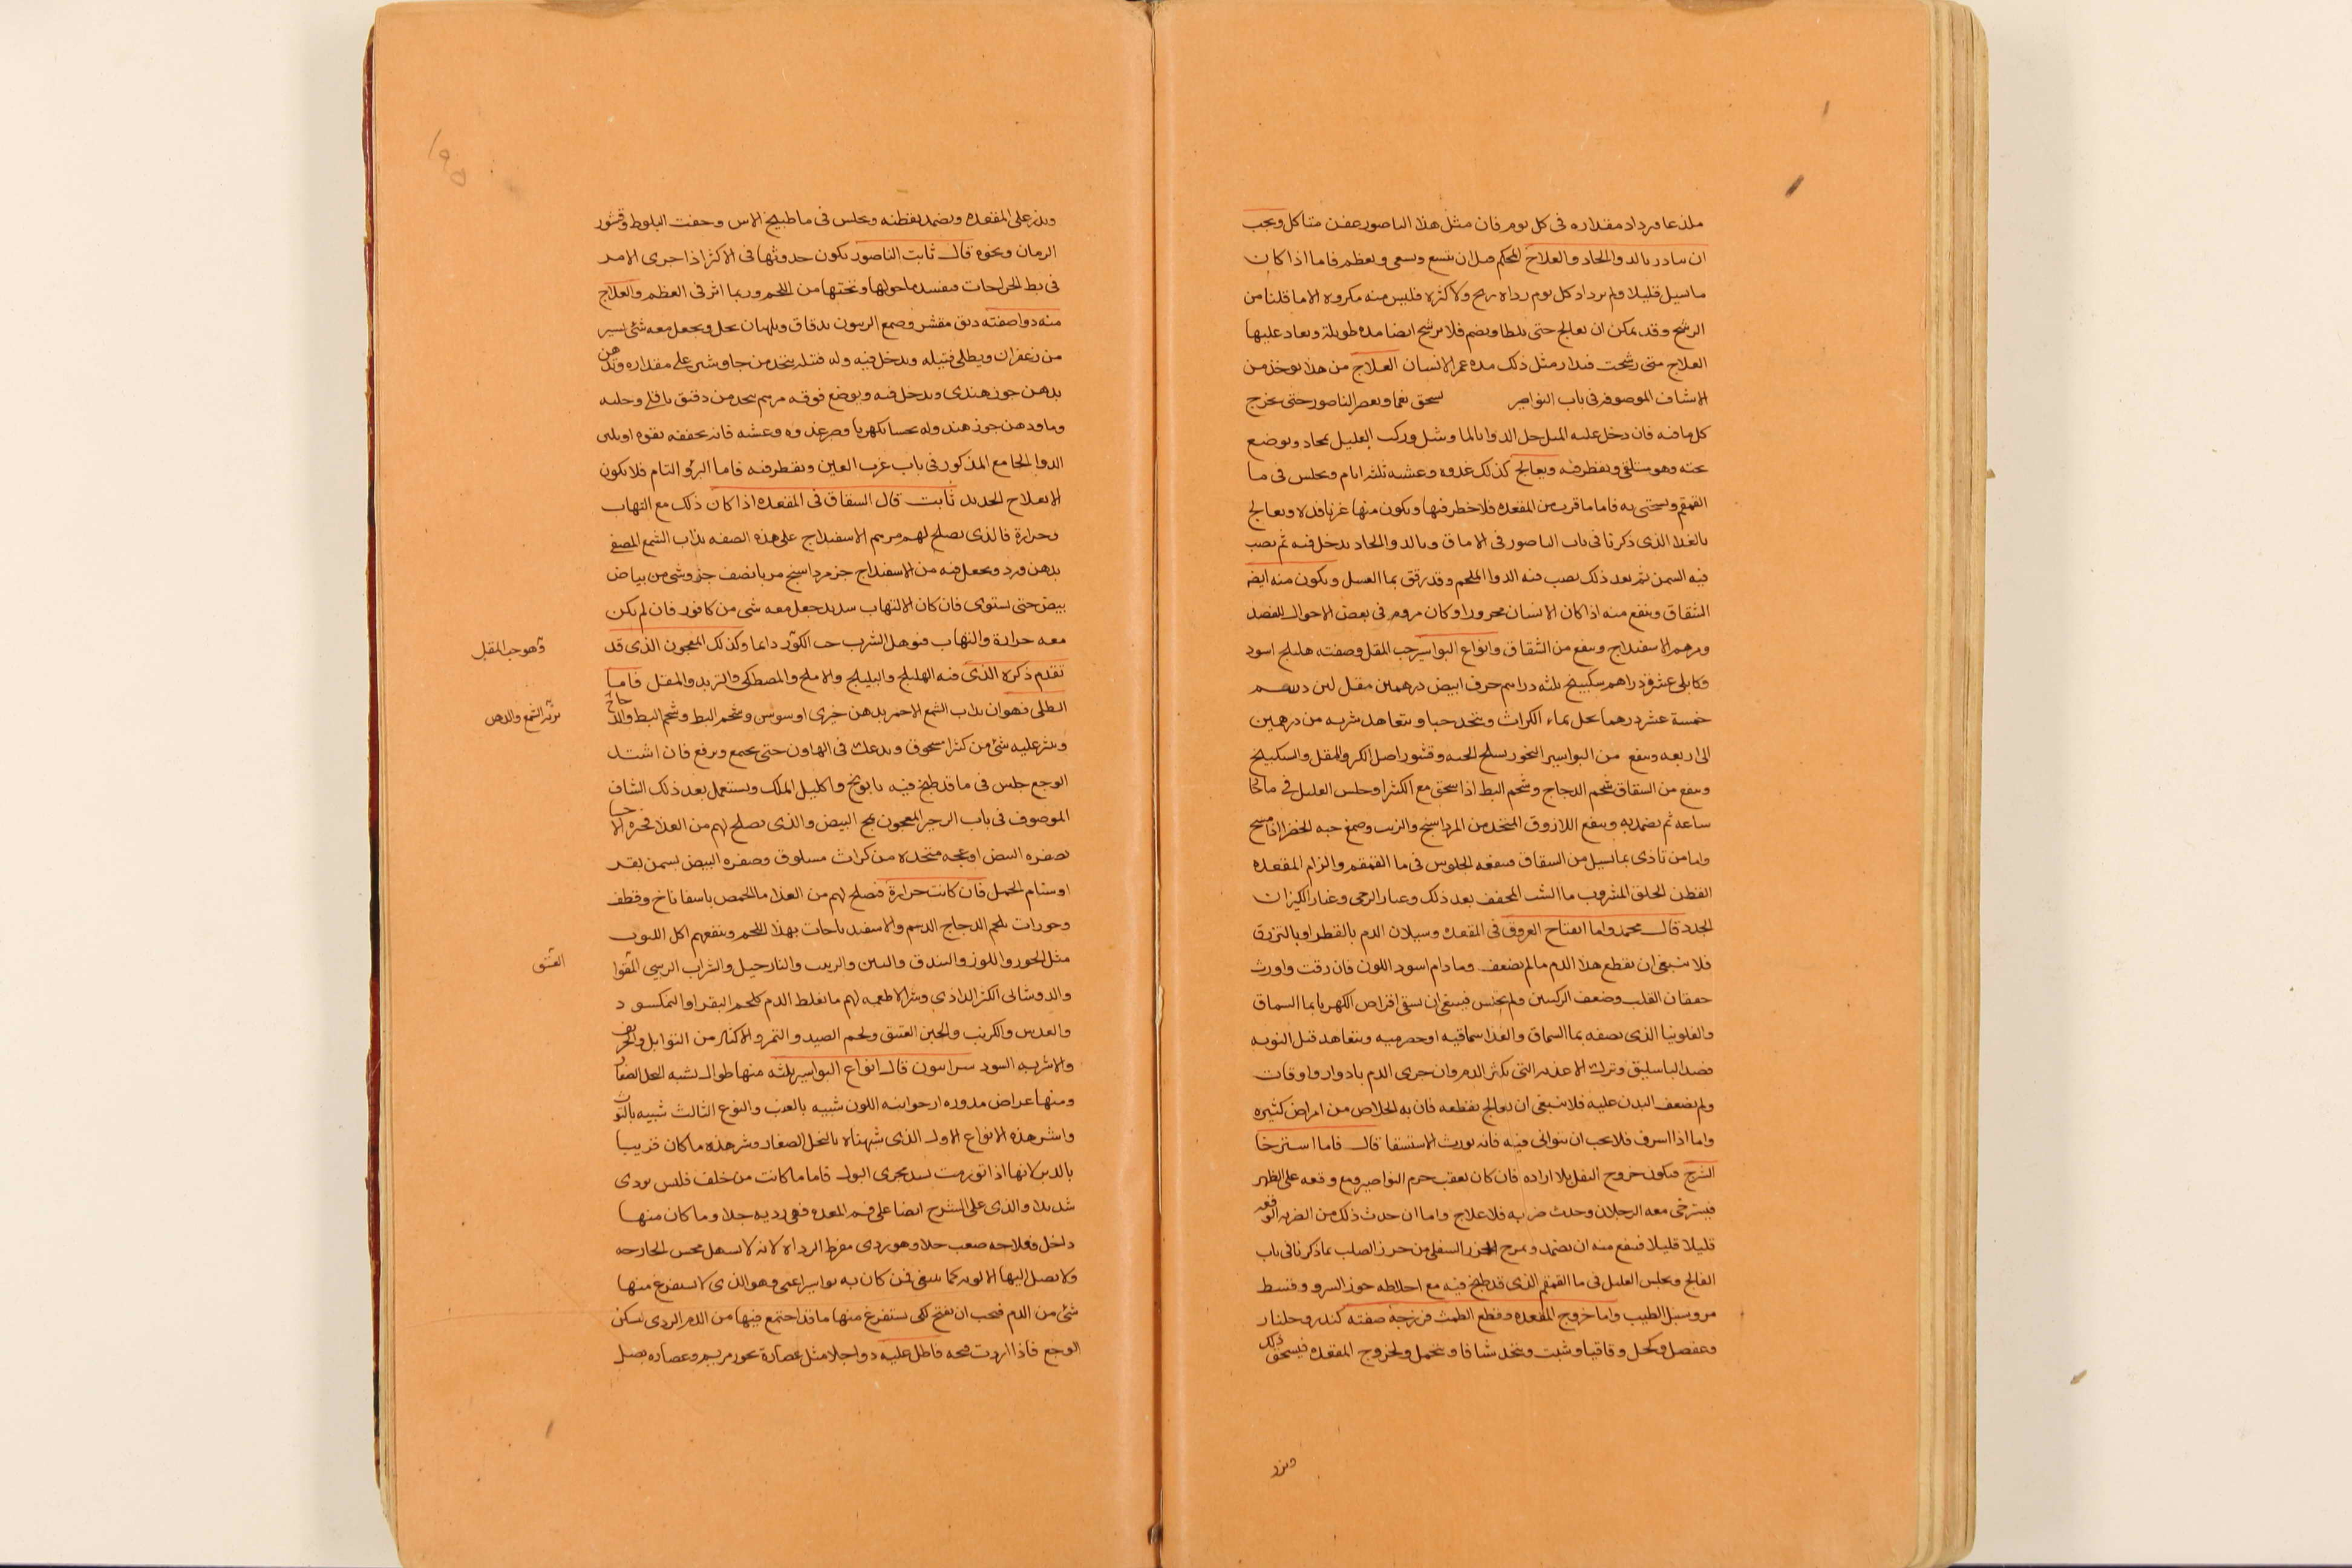 ملذعا ويزداد مقداره في كل يوم فان مثل هذا الناصور عفن متاكل ويجب
ان يبادر بالدوا الحاد والعلاج المحكم قبل ان يتسع ويسعى ويعظم فاما اذا كان
ما يسيل قليلا ولم يزداد كل يوم رداه ريح ولا كثره فليس منه مكروه الا ما قلنا من
الرشح وقد يمكن ان يعالج حتى يلطا ويضم فلا يرشح ايضا مده طويلة ويعاد عليها
العلاج متى رشحت فيدار مثل ذلك مده عمر الانسان العلاج من هذا يوخذ من
الاشياف الموصوفه في باب النواصير يسحق نعما ويعصر الناصور حتى يخرج
كل ما فيه فان دخل عليه الميل حل الدوا بالما وشيل ورك العليل بمخاد ويوضع
تحته وهو مستلقى ويقطر فيه ويعالج كذلك غدوه وعشيه ثلثه ايام ويجلس في ما
القمقم ويستنجى به فاما ما قرب من المقعده فلا خطر فيها ويكون منها غير نافذه ويعالج
بالغذا الذى ذكرنا في باب الناصور في الاماق وبالدوا الحاد يدخل فيه ثم يصب
فيه السمن ثم بعد ذلك يصب فيه الدوا الملحم وقد رقق بما العسل ويكون منه ايضه
الشقاق وينفع منه اذا كان الانسان محرورا وكان مروم في بعض الاحوال الفصد
ومرهم الاسفيداج وينفع من الشقاق وانواع البواسير حب المقل وصفته هليلج اسود
وكابلى عشره دراهم سكبينج ثلثه دراهم حرف ابيض درهمين مقل لين درهم
خمسة عشر درهما يحل بماء الكراث ويتخذ حبا ويتعاهد شربه من درهمين
الى اربعه وينفع من البواسير البخور بسلح الحيه وقشور اصل الكبر والمقل والسكبينج
وينفع من الشقاق شحم الدجاج وشحم البط اذا سحق مع الكثيرا وجلس العليل في ما
ساعه ثم يضمد به وينفع اللازوق المتخذ من المرداسنج والزيت وصمغ حبه الخضرا
واما من تاذى بما يسيل من الشقاق فينفعه الجلوس في ما القمقم والزام المقعده
القطن الخلق المشروب ما الشب المجفف بعد ذلك وغبار الرحى وغبار الكيزان
الجدد قال محمد واما انفتاح العروق في المقعده وسيلان الدم بالقطر او بالنزق
فلا ينبغى ان يقطع هذا الدم ما لم يضعف وما دام اسود اللون فان رقت واورث
خفقان القلب وضعف الركبتين ولم يحتبس فينبغى ان يسقى اقراص الكهربا بما السماق
والفلونيا الذى نصفه بما السماق والغذا سماقيه او حصرميه ويتعاهد قبل النوبه
فصد الباسليق وترك الاغذيه التى يكثر الدم وان جرى الدم بادوار واوقات
ولم يضعف البدن عليه فلا ينبغى ان يعالج بقطعه فان به الخلاص من امراض كثيره
واما اذا اسرف فلا يجب ان يتوانى فيه فانه يورث الاستسقا قال فاما استرخا
الشرج فيكون خروج الثفل بلا اراده فان كان بعقب خرم النواصير ومع وقعه على الظهر
فيسترخى معه الرجلان وحدث ضربه فلا علاج واما ان حدث ذلك من الضربه الوقعه
قليلا قليلا فينفع منه ان يضمد ويمرخ الخرز السفلى من خرز الصلب بما ذكرنا في باب
الفالج ويجلس العليل في ما القمقم الذى قد طبخ فيه مع اخلاطه جوز السرو وقسط
مر وسنبل الطيب واما خروج المقعده وقطع الطمث فرزجه صفته كندر وجلنار
وعفص وكحل وقاقيا وشبت ويتخذ شيافا ويتحمل ولخروج المقعده فيسحق ذلك
ويزر
ويذر على المقعده ويضمد بقطنه ويجلس في ما طبيخ الاس وجفت البلوط وقشور
الرمان ونحوه قال ثابت الناصور يكون حدوثها في الاكثر اذا جرى الامد
في بط الخراجات فيفسد ما حولها وتحتها من اللحم وربما اثر في العظم والعلاج
منه دوا صفته دبق مقشر وصمغ الزيتون يدقان ويلهان بخل ويجعل معه شئ يسير
من زعفران ويطلى فتيله ويدخل فيه وله فتيله يتخذ من جاوشير على مقداره وتدهن
بدهن جوز هندى ويدخل فيه ويوضع فوقه مرهم يتخذ من دقيق باقلى وحلبه
وما ودهن جوز هند وله تحسا بكهربا ومر غدوه وعشيه فانه يجففه بقوه او يلبس
الدوا الجامع المذكور في باب غرب العين ويقطر فيه فاما البرؤ التام فلا يكون
الا بعلاج الحديد ثابت قال الشقاق في المقعده اذا كان ذلك مع التهاب
وحرارة فالذى يصلح لهم مرهم الاسفيداج على هذه الصفه يذاب الشمع المصفى
بدهن ورد ويجعل فيه من الاسفيداج جزء مرداسنج مربا نصف جزء وشى من بياض
بيض حتى يستوى فان كان الالتهاب شديد جعل معه شى من كافور فان لم يكن
معه حرارة والتهاب فتوهل الشرب حب الكور دايما وكذلك المعجون الذى قد
وهو حب المقل
تقدم ذكره الذى فيه الهليلج والبليلج والاملج والمصطكى والتربد والمقل فاما
الطلى فهو ان يذاب الشمع الاحمر بدهن خيرى او سوسن وشحم البط وشحم البط والدجاج
يريد الشمع والدهن
وينثر عليه شئ من كثيرا مسحوق ويدعك في الهاون حتى يجمع ويرفع فان اشتد
الوجع جلس في ما قد طبخ فيه بابونج واكليل الملك ويستعمل بعد ذلك الشاف
الموصوف في باب الزحير المعجون بمح البيض والذى يصلح لهم من الغذا
بصفره البيض او عجه متخذه من كراث مسلوق وصفره البيض بسمن بقر
او سنام الجمل فان كانت حرارة فيصلح لهم من الغذا ما الحمص باسفاناخ وقطف
وجوزات بلحم الدجاج الدسم والاسفيدباجات بهذا اللحم وينفعهم اكل اللبوب
مثل الجوز واللوز والبندق والتين والزبيب والنارجيل والشراب الزبيبى المقوا
العتيق
والدوشابى الكثير الداذى وشر الاطعمه لهم ما يغلظ الدم كلحم البقر او النمكسود
والعدس والكرنب والجبن العتيق ولحم الصيد والتمر والاكثار من التوابل والحريف
والاشربه السود سرابيون قال انواع البواسير ثلثه منها طوال تشبه النخل الصغار
ومنها عراض مدوره ارجوانيه اللون شبيه بالعنب والنوع الثالث شبيه بالتوث
واشر هذه الانواع الاول الذى شبهناه بالنخل الصغار وشر هذه ما كان قريبا
بالدبر لانها اذا تورمت تسد مجرى البول فاما ما كانت من خلف فليس بردى
شديدا والذى على الشرج ايضا على فم المعده فهى رديه جدا وما كان منها
داخل فعلاجه صعب جدا وهو ردى مفرط الرداه لانه لا يسهل محس الجارحه
ولا يصل اليها الادويه كما ينبغى فمن كان به بواسير اعمى وهو الذى لا يستفرغ منها
شئ من الدم فيجب ان يفتح لكى يستفرغ منها ما قد اجتمع فيها من الدم الردى ليسكن
الوجع فاذا اردت فتحه فاطل عليه دوا جلا مثل عصارة بخور مريم وعصاره بصل